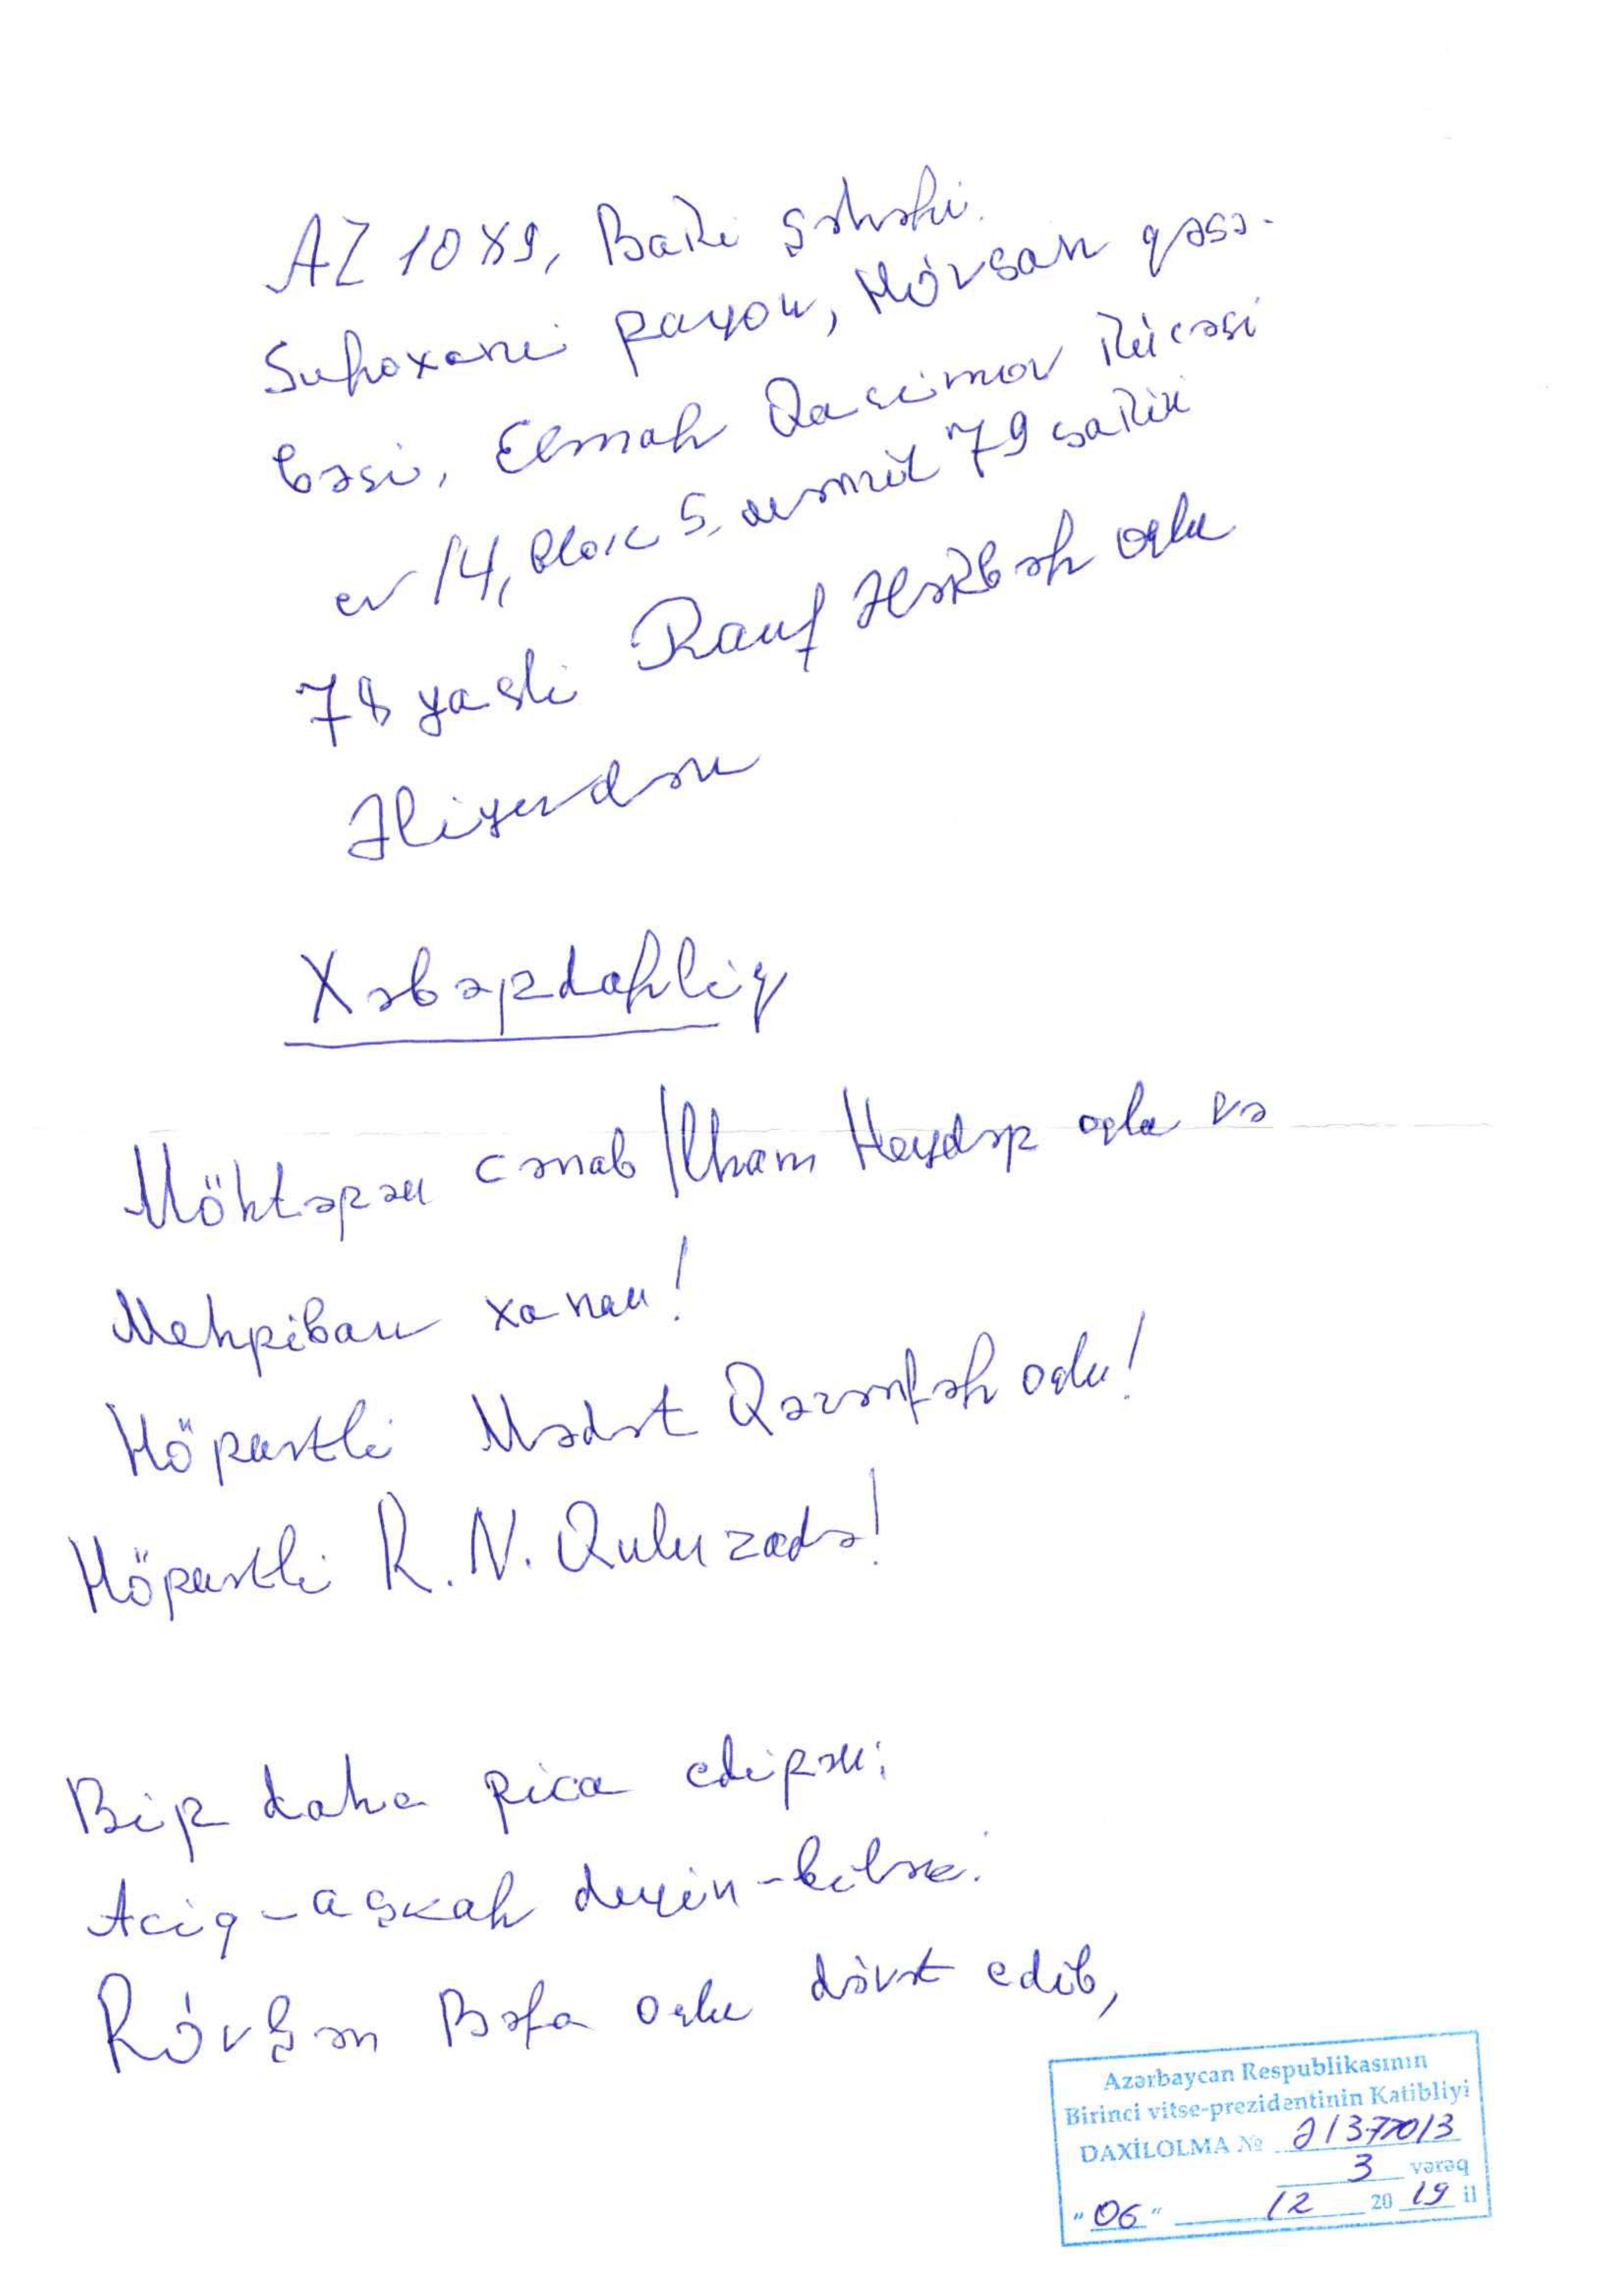 AZ 1089, Bakı şəhəri.
Suraxanı rayon, Hövsan qəsə-
bəsi, Elmar Qasımov küçəsi
ev 14, blok 5, mənzil 79 sakin
78 yaşlı Rauf Ələkbər oğlu
Əliyevdən
Xəbərdarlıq
Möhtərəm cənab İlham Heydər oğlu və
Mehriban xanım!
Hörmətli Mədət Qəzənfər oğlu!
Hörmətli R. N. Quluzadə!
Bir daha rica edirəm:
Açıq-aşkar deyin-bilək.
Rövşən Bəfa oğlu dəvət edib,
Azərbaycan Respublikasının
Birinci vitse-prezidentinin Katibliyi
DAXİLOLMA № Ə1377013
3 vərəq
"06" 12 2019 il